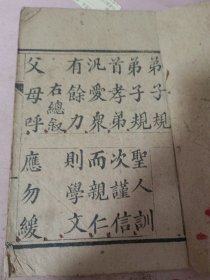 弟子規
弟子規聖人訓
首孝弟次謹信
汎愛衆而親仁
有餘力則學文
右總叙
父母呼應勿緩